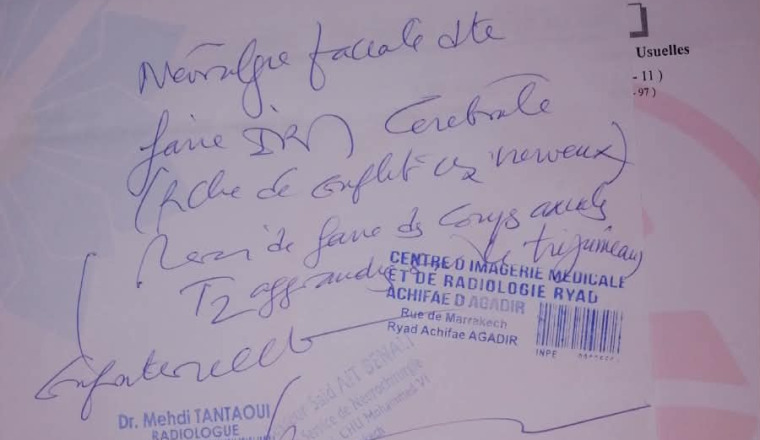 Usuelles
- 11 )
- 97 )
Névralgie faciale dte
faire IRM Cerebrale
(Rche de conflit vx nerveux)
Merci de faire des Coups axiales
T2 aggrandies le trijumeau
CENTRE D IMAGERIE MEDICALE
ET DE RADIOLOGIE RYAD
ACHIFAE D AGADIR
Rue de Marrakech
Ryad Achifae AGADIR
INPE
Said AIT BENALI
Service de Neurochirurgie
CHU Mohammed VI
Dr. Mehdi TANTAOUI
RADIOLOGUE